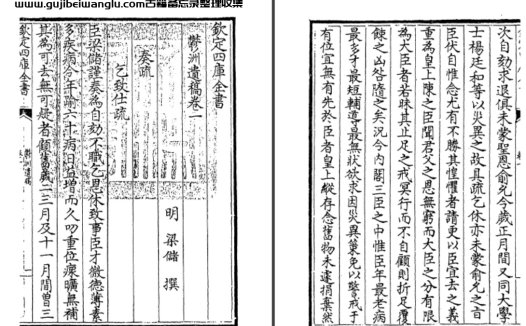 www.gujibeiwanglu.com古籍备忘录整理收集
欽定四庫全書
鬱洲遺稿卷一
明 梁儲 撰
奏疏
乞致仕疏
臣梁儲謹奏為自劾不職乞恩休致事臣才微德薄素
多疾病今年踰六十病日益增而久叨重位瘝曠無補
其為可去無可疑者顧舊歲二三月及十一月間曾三
欽定四庫全書
次自劾求退俱未蒙聖恩俞允今歲正月間又同大學
士楊廷和等以災異之故具疏乞休亦未蒙俞允之音
臣伏自惟念尤有不勝其惶懼者請更以臣宜去之義
重為皇上陳之臣聞君父之恩無窮而大臣之分有限
為大臣者若昧其止足之戒冥行而不自顧則折足覆
餗之凶咎隨之矣況今内閣三臣之中惟臣年最老病
最多才最短輔導最無狀欲求因災異策免以警戒于
有位宜無有先於臣者皇上縱存念舊物未遽捐棄然